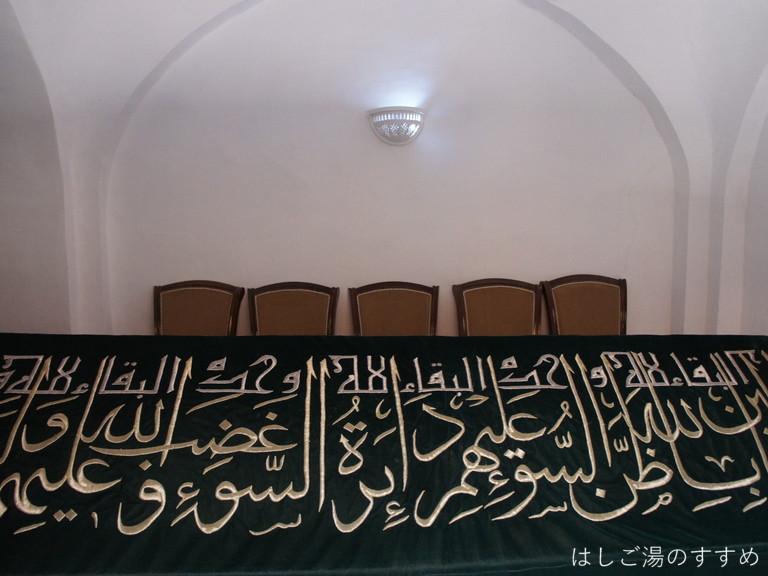 البقاء لله وحده البقاء لله وحده البقاء لله
ين بالله ظن السوء عليهم دائرة السوء وغضب الله عليهم
はしご湯のすすめ